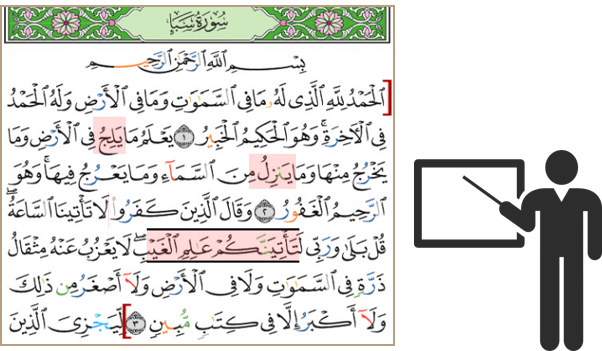 سُورَةُ سَبَإٍ
بِسْمِ ٱللَّهِ ٱلرَّحْمَٰنِ ٱلرَّحِيمِ
[ٱلْحَمْدُ لِلَّهِ ٱلَّذِى لَهُۥ مَا فِى ٱلسَّمَٰوَٰتِ وَمَا فِى ٱلْأَرْضِ وَلَهُ ٱلْحَمْدُ
فِى ٱلْءَاخِرَةِۚ وَهُوَ ٱلْحَكِيمُ ٱلْخَبِيرُ ١ يَعْلَمُ مَا يَلِجُ فِى ٱلْأَرْضِ وَمَا
يَخْرُجُ مِنْهَا وَمَا يَنزِلُ مِنَ ٱلسَّمَآءِ وَمَا يَعْرُجُ فِيهَاۚ وَهُوَ
ٱلرَّحِيمُ ٱلْغَفُورُ ٢ وَقَالَ ٱلَّذِينَ كَفَرُوا۟ لَا تَأْتِينَا ٱلسَّاعَةُۖ
قُلْ بَلَىٰ وَرَبِّى لَتَأْتِيَنَّكُمْ عَٰلِمِ ٱلْغَيْبِۖ لَا يَعْزُبُ عَنْهُ مِثْقَالُ
ذَرَّةٍ فِى ٱلسَّمَٰوَٰتِ وَلَا فِى ٱلْأَرْضِ وَلَآ أَصْغَرُ مِن ذَٰلِكَ
وَلَآ أَكْبَرُ إِلَّا فِى كِتَٰبٍ مُّبِينٍ ٣] لِّيَجْزِىَ ٱلَّذِينَ